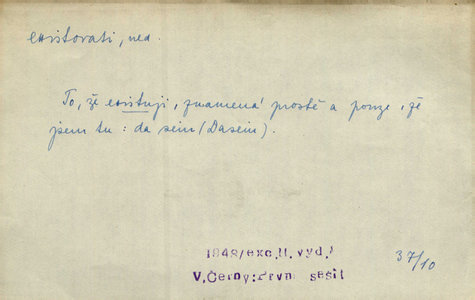 existovati, ned.
To, že existuji, znamená prostě a pouze, že
jsem tu: da sein (Dasein).
1948/exc.II. vyd./
V.Černý:První sešit
37/10